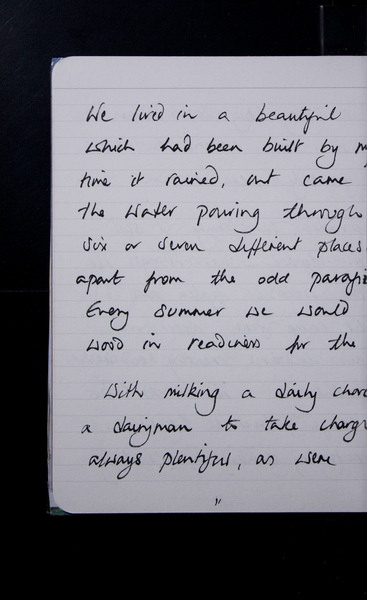 We lived in a beautiful
which had been built by
time it rained, out came
the water pouring through
six or seven different places
apart from the odd
Every summer we would
wood in readiness for the
With milking a daily
a dairyman to take
always plentiful, as were
"